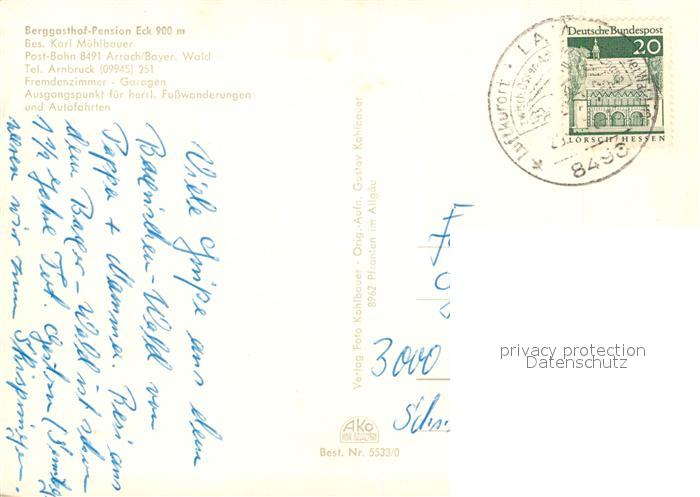 Berggasthof-Pension Eck 900 m
Bes. Karl Mühlbauer
Post-Bahn 8491 Arrach/Bayer. Wald
Tel. Arnbruck (09945) 251
Fremdenzimmer - Garagen
Ausgangspunkt für herrl. Fußwanderungen
und Autofahrten
Viele Grüße aus dem
Bayrischen-Wald von
Pappa + Mamma. Resi aus
dem Bayer-Wald ist schon
1½ Jahre Tot. Gestern
waren wir zum Skispringen.
Verlag Foto Kohlbauer - Orig.-Aufn. Gustav Kohlbauer
8962 Pfronten im Allgäu
AKO
Best. Nr. 5533/0
Deutsche Bundespost
20
LORSCH/HESSEN
Luftkurort
8496
3000
privacy protection
Datenschutz